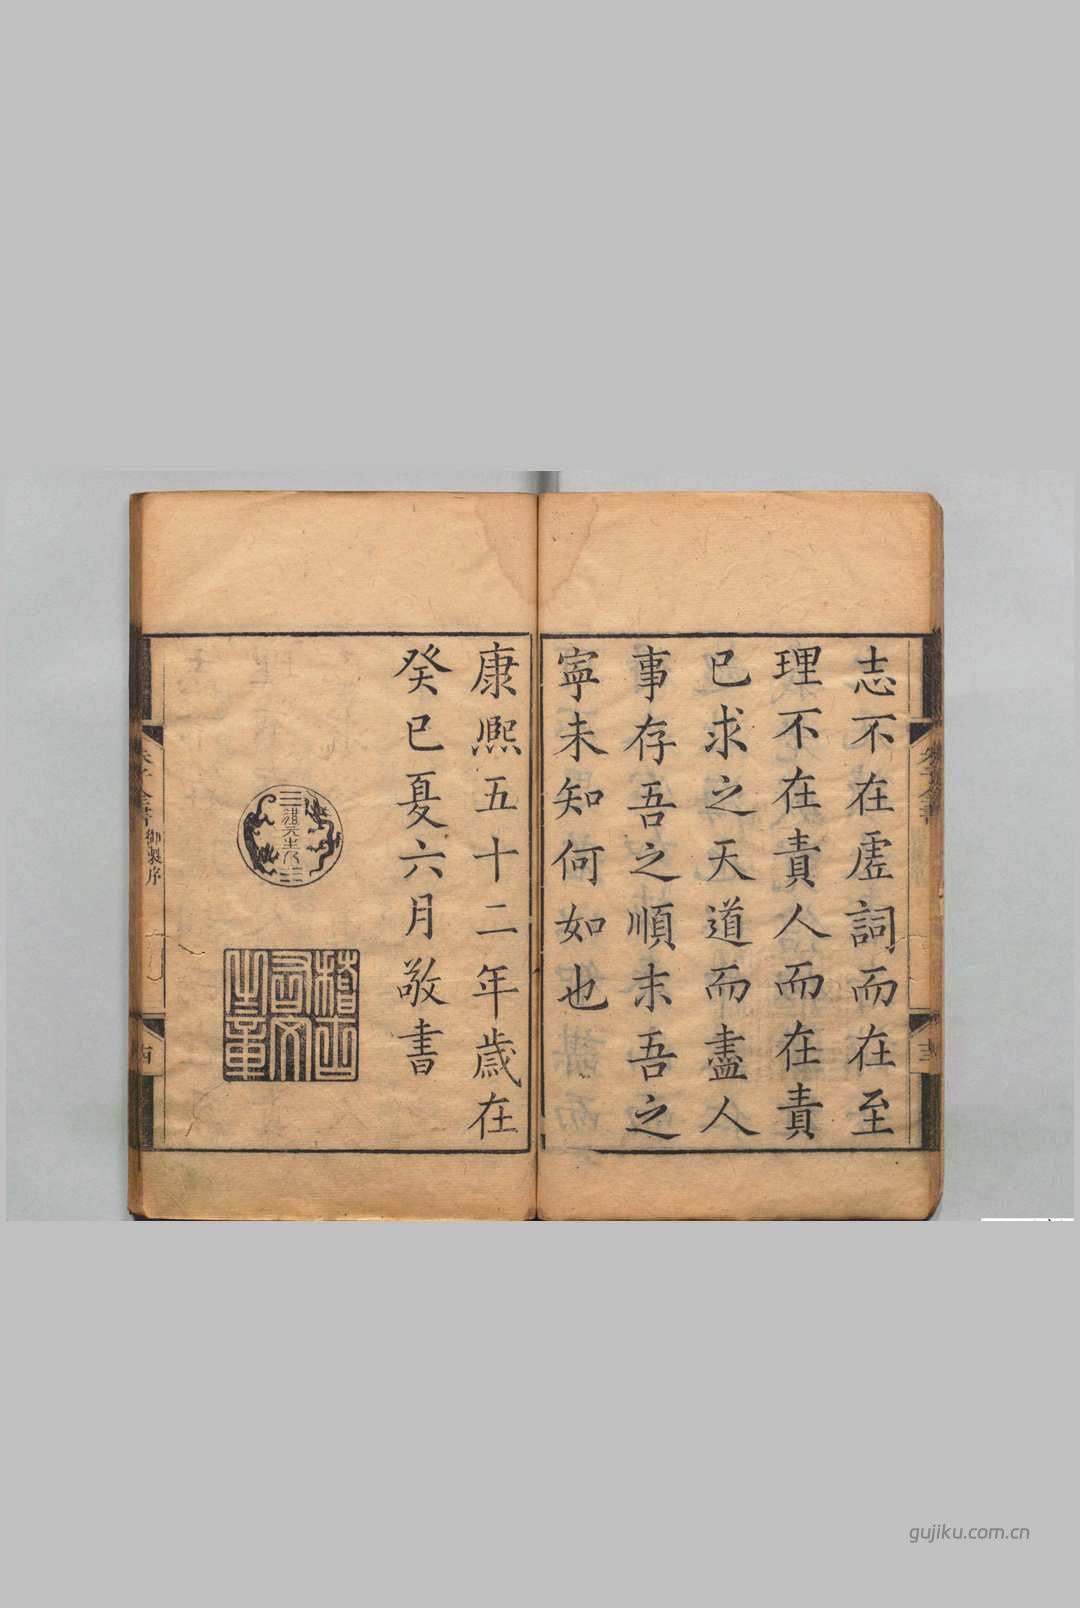 志不在虛詞而在至
理不在責人而在責
已求之天道而盡人
事存吾之順末吾之
寧未知何如也
康熙五十二年歲在
癸巳夏六月敬書
稽古
右文
之章
朱子全書
御製序
gujiku.com.cn